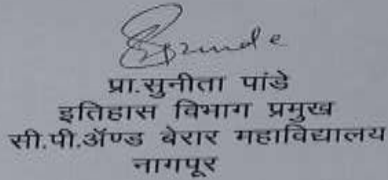 प्रा.सुनीता पांडे
इतिहास विभाग प्रमुख
सी.पी.ॲण्ड बेरार महाविद्यालय
नागपूर